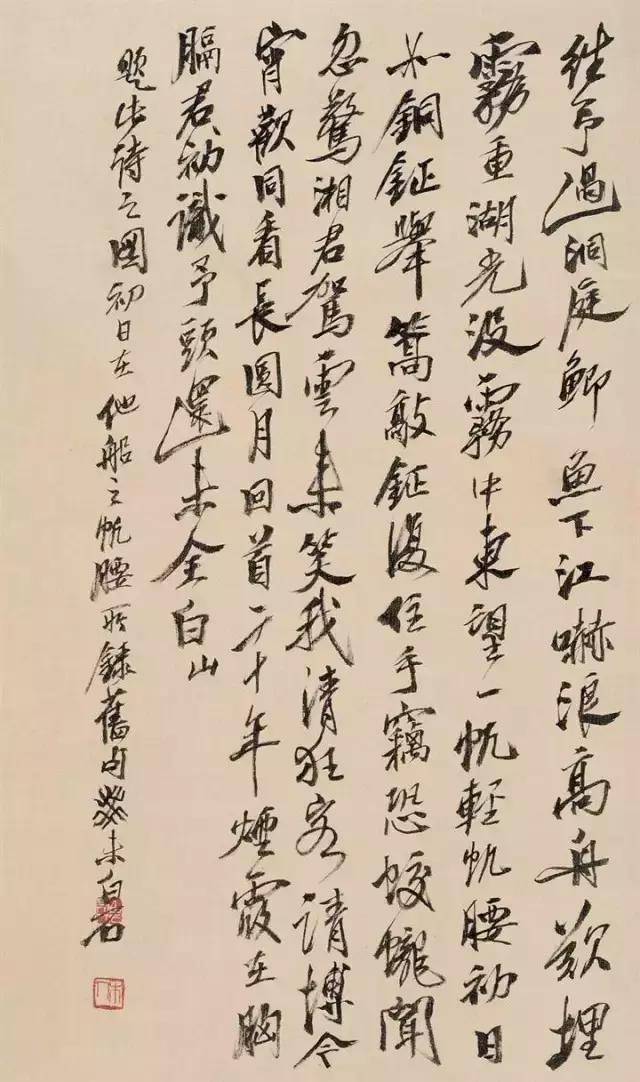 往予過洞庭鯽魚下江嚇浪高舟欲埋
霧重湖光没霧中東望一帆輕帆腰初日
如銅鉦舉篙敲鉦復住手竊恐蛟龍聞
忽驚湘君駕雲来笑我清狂客請博今
宵歡同看長圓月回首二十年煙霞在胸
膈君初識予頭還未全白山
題此詩之圖初日在他船之帆腰所錄舊句癸未白石